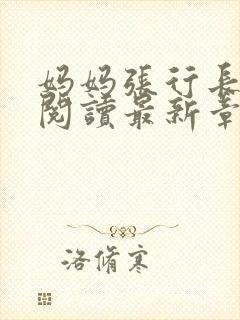 妈妈張行長
閱讀最新章
洛脩寒